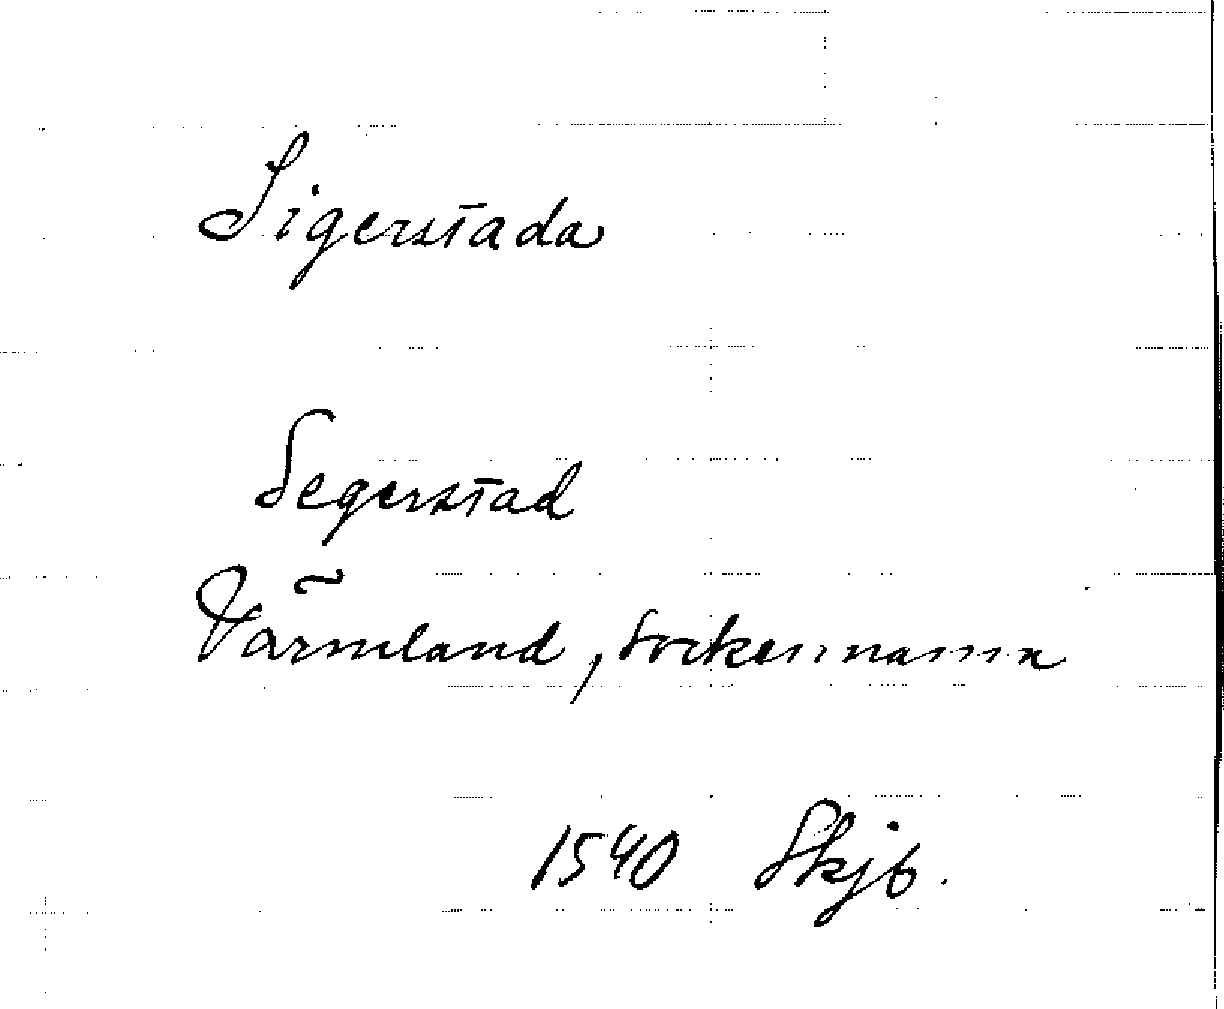 Sigerstada
Segerstad
Värmland, sockennamn
1540 Skjb.